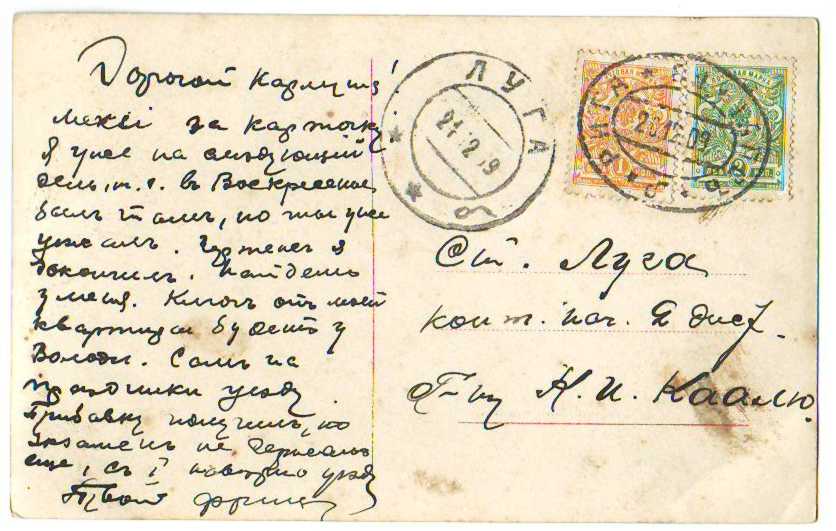 Дорогой Карлуша!
за карточку
Я уже на следующий
день, т. е. въ Воскресенье
былъ тамъ, но ты уже
уѣхалъ. Чертежъ я
закончилъ. Найдешь
у меня. Ключъ отъ моей
квартиры будетъ у
Володи. Самъ на
праздники уѣду.
Прибавку получилъ, но
экзаменъ не
еще, съ уѣду
Твой Фрицъ
ЛУГА
21 12 09
РИГА
Ст. Луга
конт. нач. Я дист.
Г-ну К. И. Каалю.